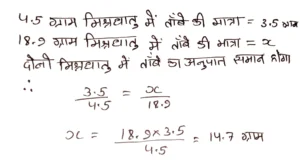 4.5 ग्राम मिश्रधातु में ताँबे की मात्रा = 3.5 ग्राम
18.9 ग्राम मिश्रधातु में ताँबे की मात्रा = x
दोनो मिश्रधातु में ताँबे का अनुपात समान होगा
∴
3.5/4.5 = x/18.9
x = 18.9×3.5/4.5 = 14.7 ग्राम